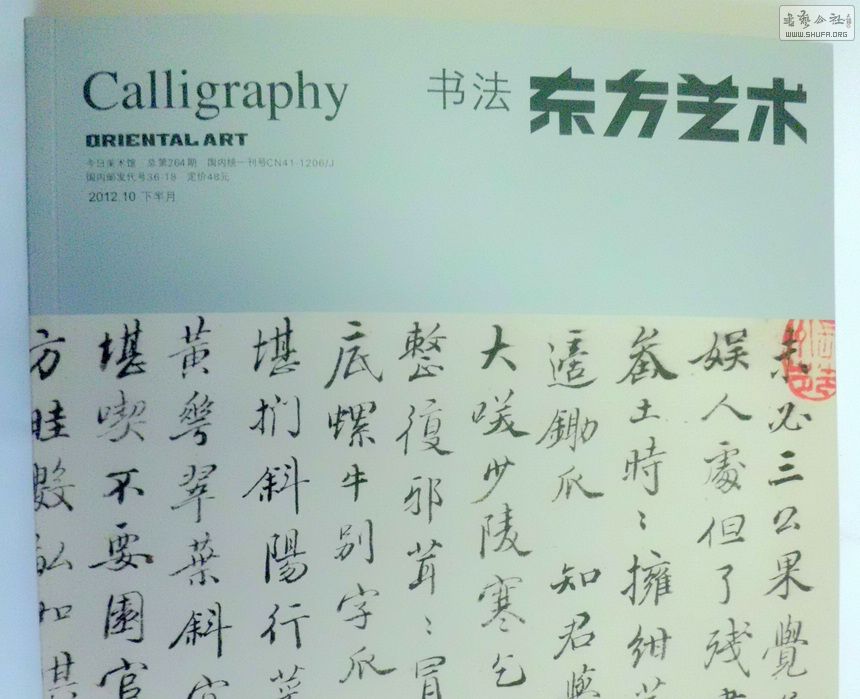 書藝公社
WWW.SHUFA.ORG
Calligraphy
书法 东方艺术
ORIENTAL ART
今日美术馆 总第264期 国内统一刊号CN41-1206/J
国内邮发代号36-18 定价48元
2012.10 下半月
未必三公果覺
娱人處但了残
土時〻擁紺
鋤瓜 知君
大嘆少陵寒乞
整復邪茸〻冒
底螺牛别字瓜
堪捫斜陽行葉
黄花翠葉斜
堪喫不要園官
方畦數